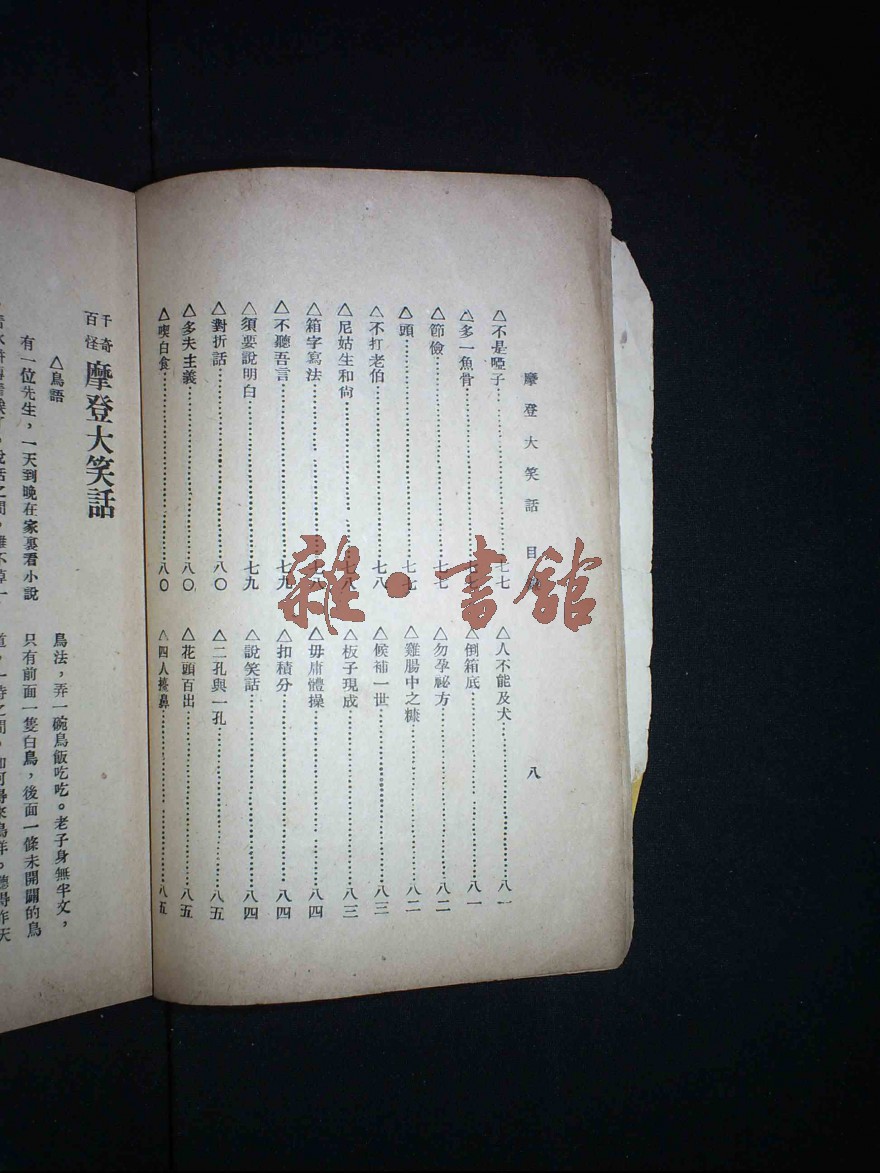 摩登大笑話 目
八
△不是啞子……七七
△多一魚骨……七七
△節儉……七七
△頭……七七
△不打老伯……七八
△尼姑生和尙……七八
△箱字寫法……七八
△不聽吾言……七九
△須要說明白……七九
△對折話……八〇
△多夫主義……八〇
△喫白食……八〇
△人不能及犬……八一
△倒箱底……八一
△勿孕祕方……八二
△雞腸中之糠……八二
△候補一世……八三
△板子現成……八三
△毋庸體操……八四
△扣積分……八四
△說笑話……八四
△二孔與一孔……八五
△花頭百出……八五
△四人擤鼻……八五
千奇百怪 摩登大笑話
△鳥語
有一位先生，一天到晚在家裏看小說
鳥法，弄一碗鳥飯吃吃。老子身無半文，
只有前面一隻白鳥，後面一條未開關的鳥
雜·書館